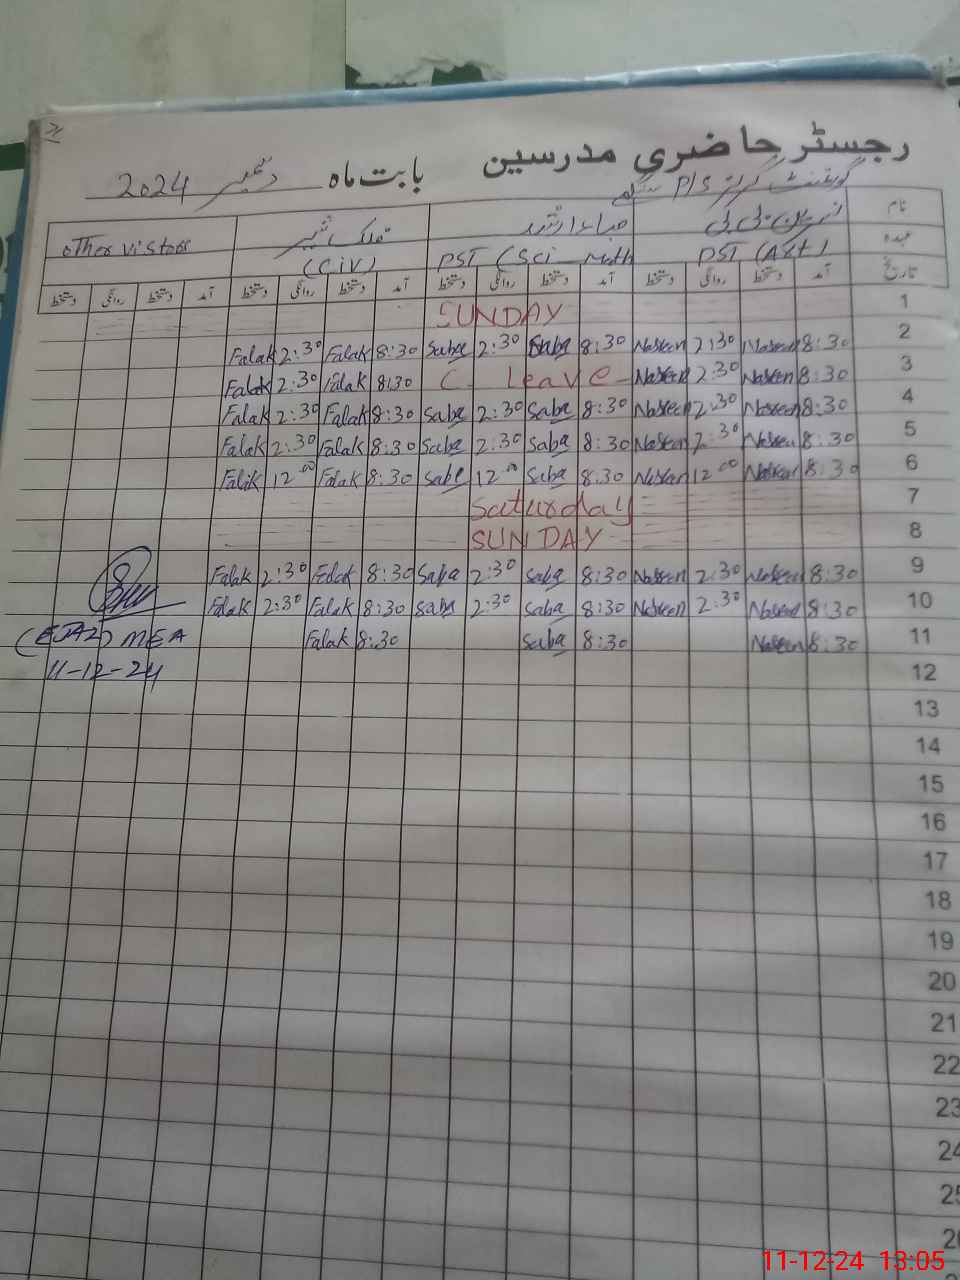 رجسٹر حاضری مدرسین بابت ماہ دسمبر 2024
گورنمنٹ گرلز P/S
نام نسرین بی بی صباء ارشد فلک شبیر other vistors
عہدہ PST (Art) PST (Sci-Math (Civ)
تاریخ آمد دستخط روانگی دستخط آمد دستخط روانگی دستخط آمد دستخط روانگی دستخط آمد دستخط روانگی دستخط
SUNDAY 1
Falak 2:30 Falak 8:30 Saba 2:30 Saba 8:30 Nasreen 2:30 Nasreen 8:30 2
Falak 2:30 Falak 8:30 C. Leave Nasreen 2:30 Nasreen 8:30 3
Falak 2:30 Falak 8:30 Saba 2:30 Saba 8:30 Nasreen 2:30 Nasreen 8:30 4
Falak 2:30 Falak 8:30 Saba 2:30 Saba 8:30 Nasreen 2:30 Nasreen 8:30 5
Falak 12:00 Falak 8:30 Saba 12:00 Saba 8:30 Nasreen 12:00 Nasreen 8:30 6
Saturday 7
SUNDAY 8
Falak 2:30 Falak 8:30 Saba 2:30 Saba 8:30 Nasreen 2:30 Nasreen 8:30 9
Falak 2:30 Falak 8:30 Saba 2:30 Saba 8:30 Nasreen 2:30 Nasreen 8:30 10
(EJAZ) MEA Falak 8:30 Saba 8:30 Nasreen 8:30 11
11-12-24 12
13
14
15
16
17
18
19
20
21
22
23
24
25
11-12-24 13:05